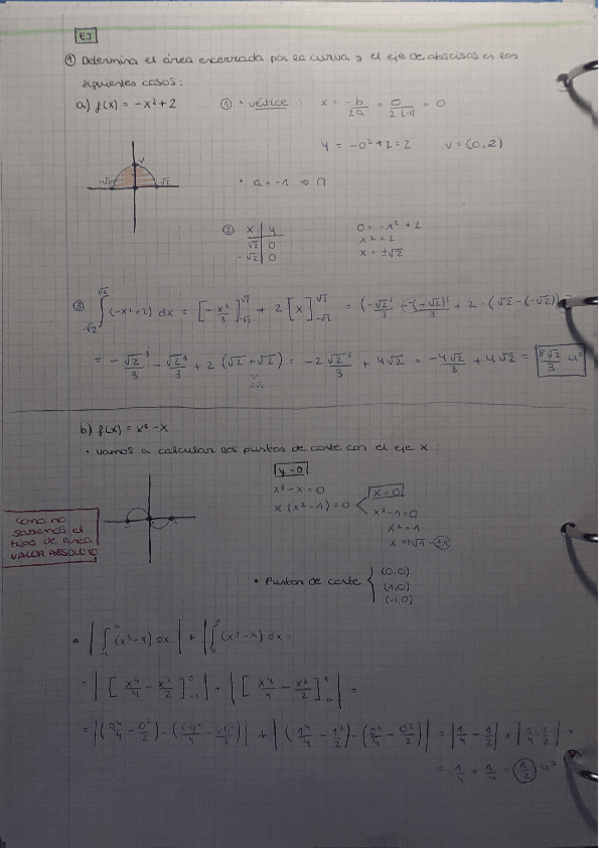 EJ
① Determina el área encerrada por la curva y el eje de abscisas en los
siguientes casos:
a) f(x) = -x² + 2
① • vértice : x = -b/2a = 0/2(-1) = 0
y = -0² + 2 = 2 v = (0,2)
V
-√2 √2
• a = -1 ⇒ ∩
② x | y
√2 | 0
-√2 | 0
0 = -x² + 2
x² = 2
x = ±√2
③ ∫_{-√2}^{√2} (-x²+2) dx = [-x³/3]_{-√2}^{√2} + 2 [x]_{-√2}^{√2} = (-√2³/3 - -(-√2)³/3 + 2 · (√2 - (-√2)) =
= -√2³/3 - √2³/3 + 2 (√2 + √2) = -2 √2³/3 + 4√2 = -4√2/3 + 4√2 = 8√2/3 u²
2√2
b) f(x) = x³ - x
• vamos a calcular los puntos de corte con el eje x :
y = 0
x³ - x = 0
x (x² - 1) = 0
x = 0
x² - 1 = 0
x² = 1
x = ±√1 = ±1
como no
sabemos el
tipo de área
VALOR ABSOLUTO
• Puntos de corte { (0,0)
(1,0)
(-1,0)
• |∫_{-1}^{0} (x³-x) dx| + |∫_{0}^{1} (x³-x) dx| =
= |[x⁴/4 - x²/2]_{-1}^{0}| + |[x⁴/4 - x²/2]_{0}^{1}| =
= |(0⁴/4 - 0²/2) - ((-1)⁴/4 - (-1)²/2)| + |(1⁴/4 - 1²/2) - (0⁴/4 - 0²/2)| = |1/4 - 1/2| + |1/4 - 1/2| =
= 1/4 + 1/4 = 1/2 u²